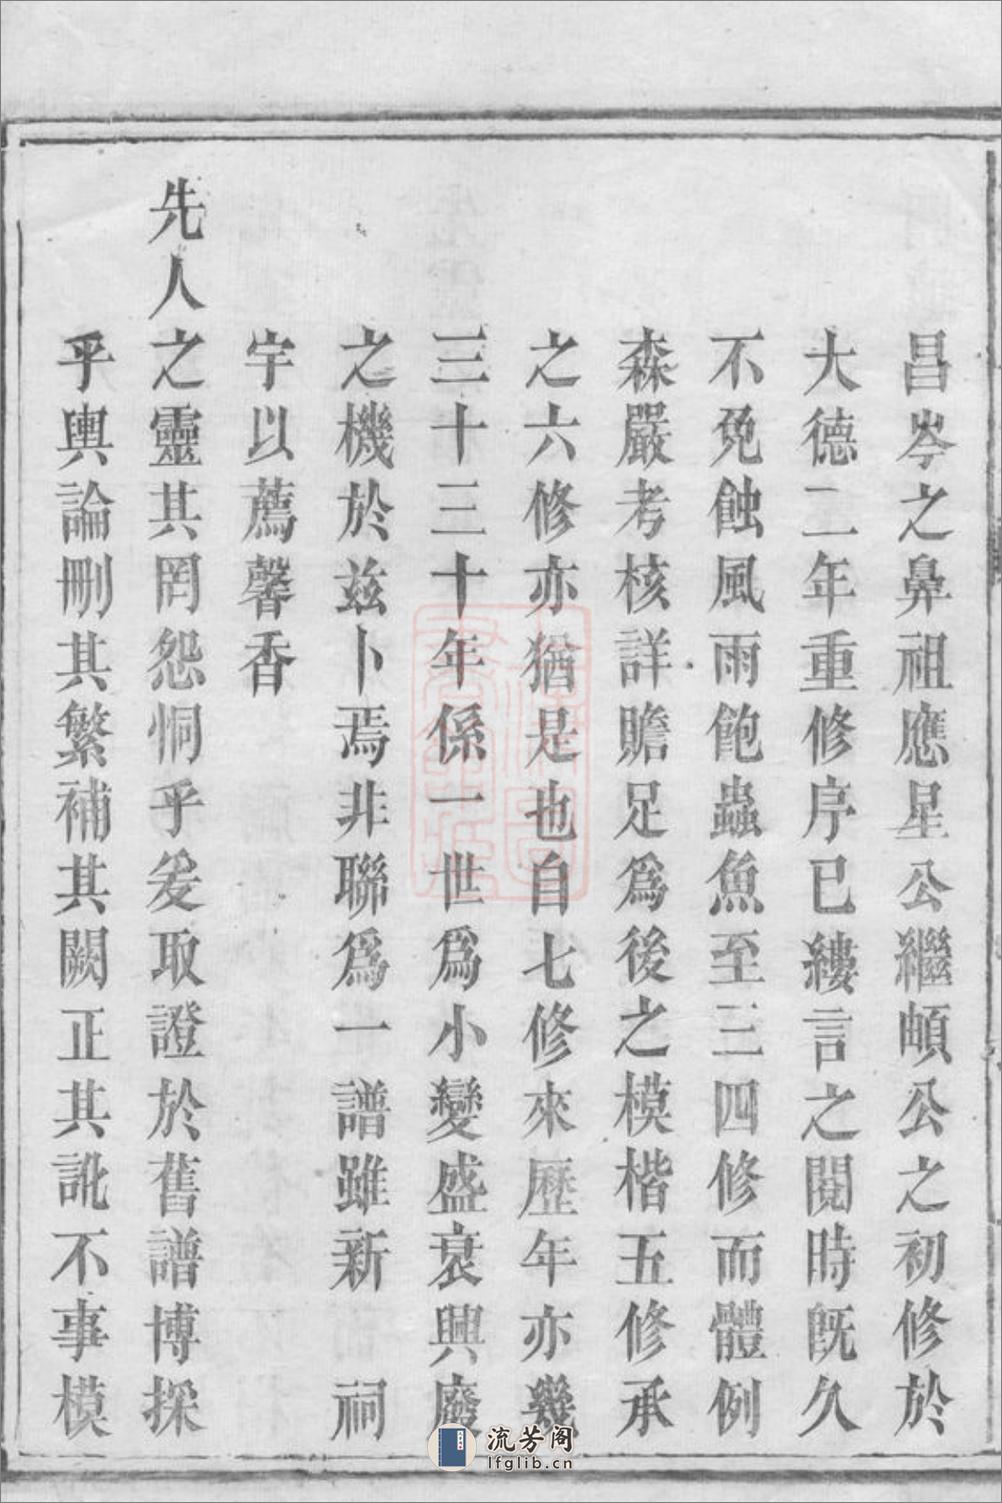 昌岑之鼻祖應星公繼頔公之初修於
大德二年重修序已縷言之閱時既久
不免蝕風雨飽蟲魚至三四修而體例
森嚴考核詳贍足為後之模楷五修承
之六修亦猶是也自七修來歷年亦幾
三十三十年係一世為小變盛衰興廢
之機於兹卜焉非聯為一譜雖新祠
宇以薦馨香
先人之靈其罔怨恫乎爰取證於舊譜博採
乎輿論刪其繁補其闕正其訛不事模
流芳阁
lfglib.cn